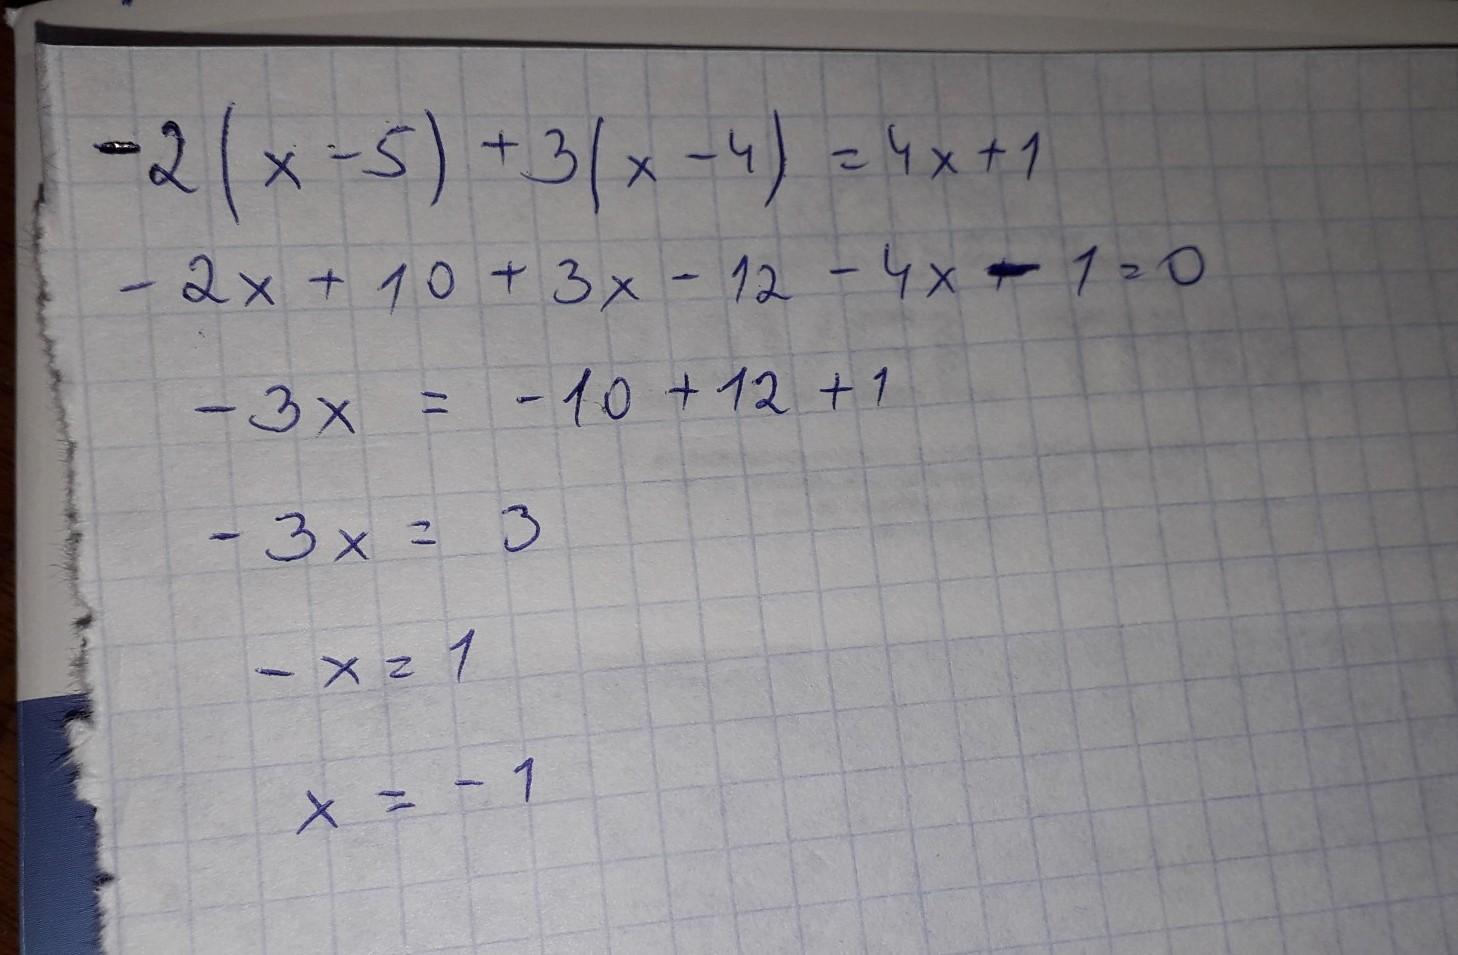 -2(x-5)+3(x-4)=4x+1
-2x+10+3x-12-4x-1=0
-3x = -10+12+1
-3x = 3
-x=1
x = -1